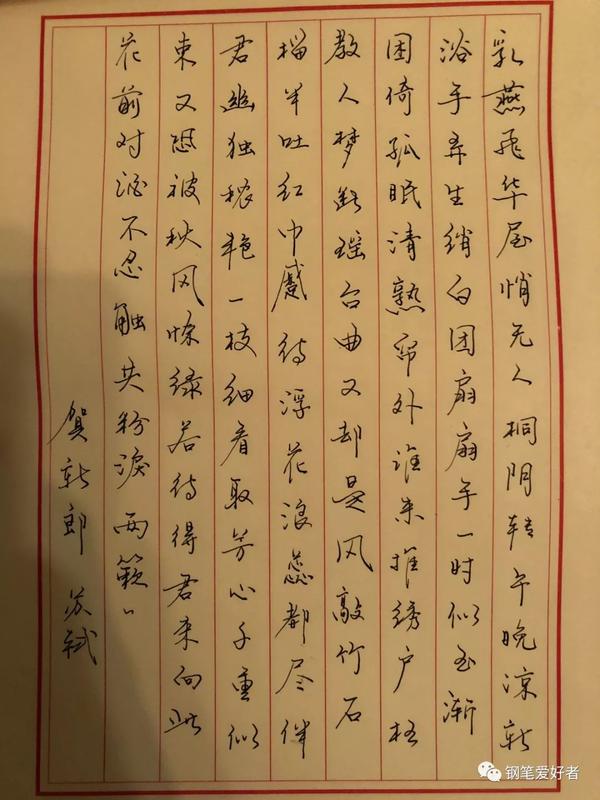 乳燕飞华屋悄无人桐阴转午晚凉新
浴手弄生绡白团扇扇手一时似玉渐
困倚孤眠清熟帘外谁来推绣户枉
教人梦断瑶台曲又却是风敲竹石
榴半吐红巾蹙待浮花浪蕊都尽伴
君幽独秾艳一枝细看取芳心千重似
束又恐被秋风惊绿若待得君来向此
花前对酒不忍触共粉泪两簌〃
贺新郎 苏轼
钢笔爱好者